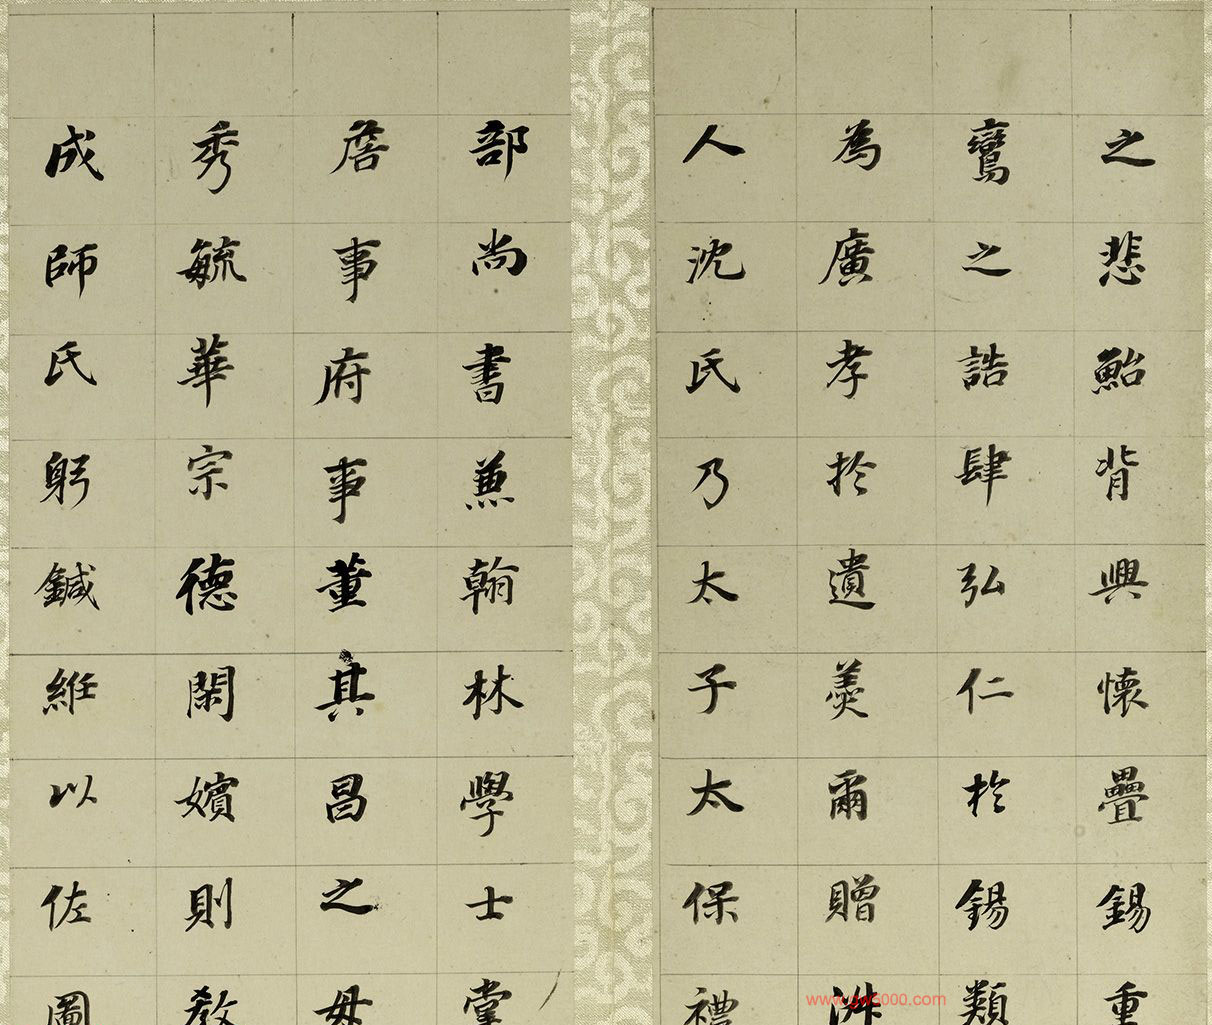 之悲鮐背興懷疊錫重
鸞之誥肆弘仁於錫類
為廣孝於遺羮爾贈淑
人沈氏乃太子太保禮
部尚書兼翰林學士掌
詹事府事董其昌之母
秀毓華宗德閑嬪則教
成師氏躬鍼紝以佐圖